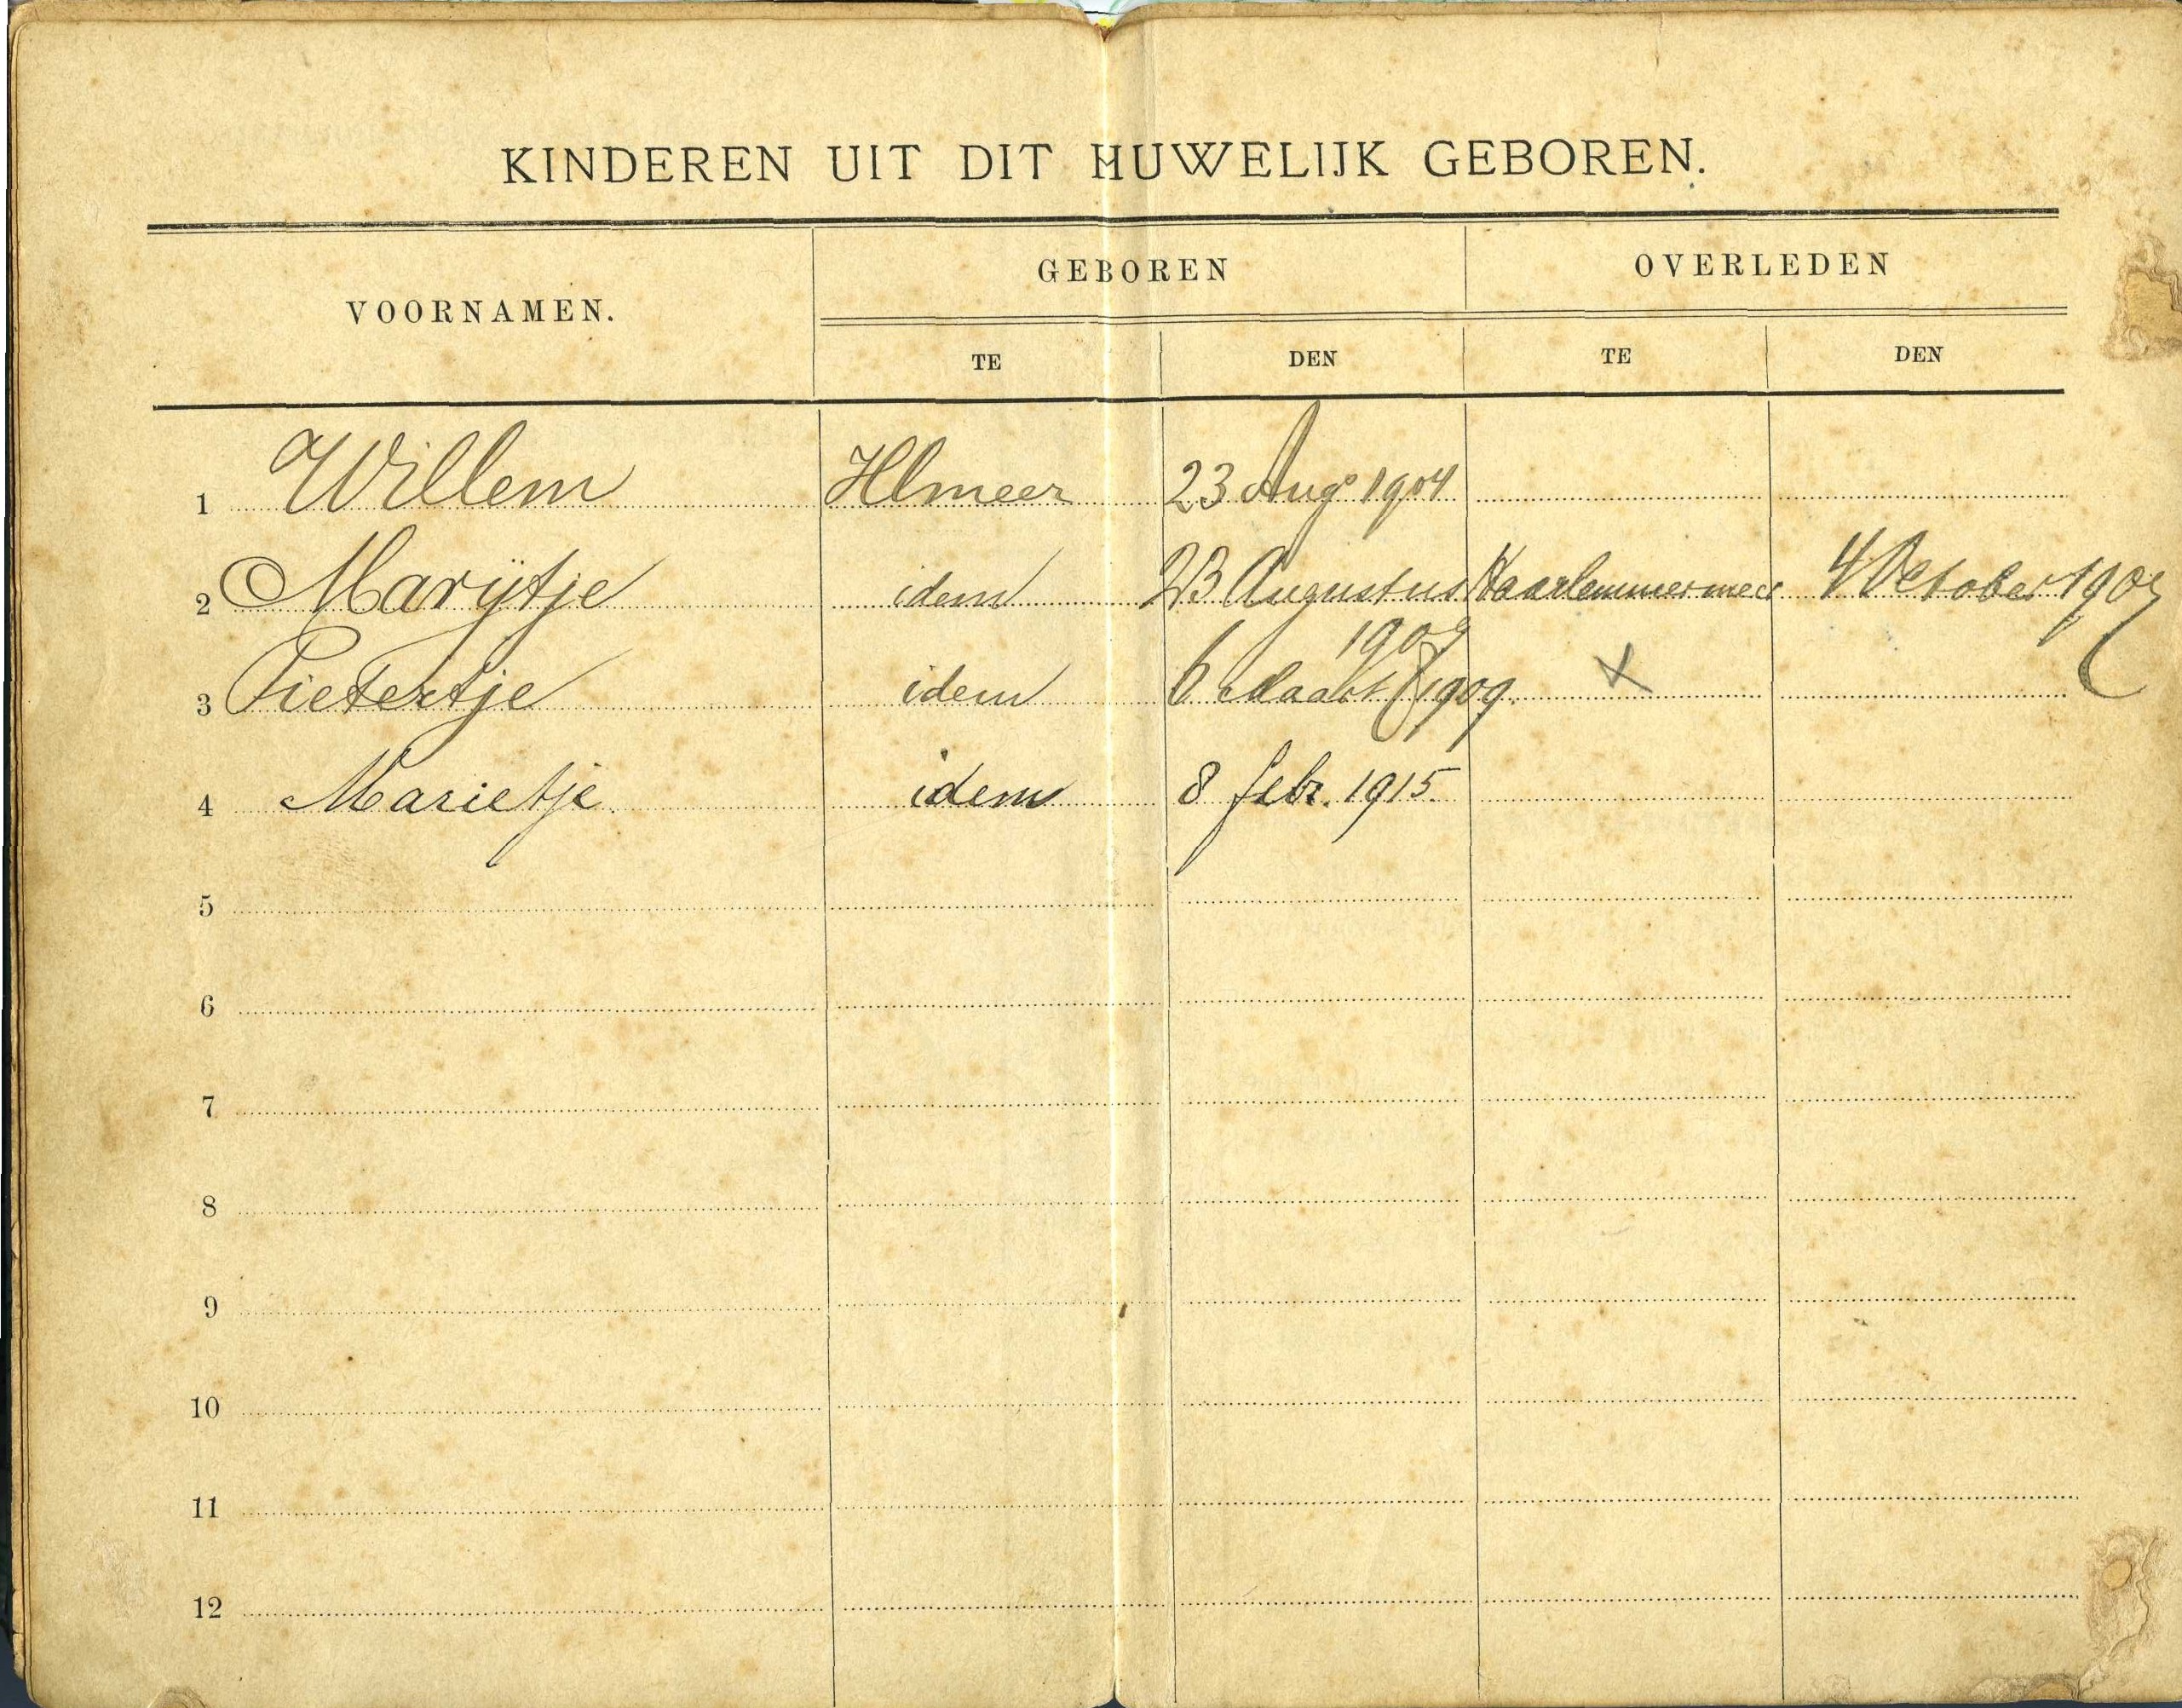 KINDEREN UIT DIT HUWELIJK GEBOREN.
VOORNAMEN. GEBOREN OVERLEDEN
TE DEN TE DEN
1 Willem Hlmeer 23 Augs 1904
2 Marijtje idem 23 Augustus Haarlemmermeer 4 October
3 Pietertje idem 6 Maart 1909. X
4 Marietje idem 8 febr. 1915.
5
6
7
8
9
10
11
12